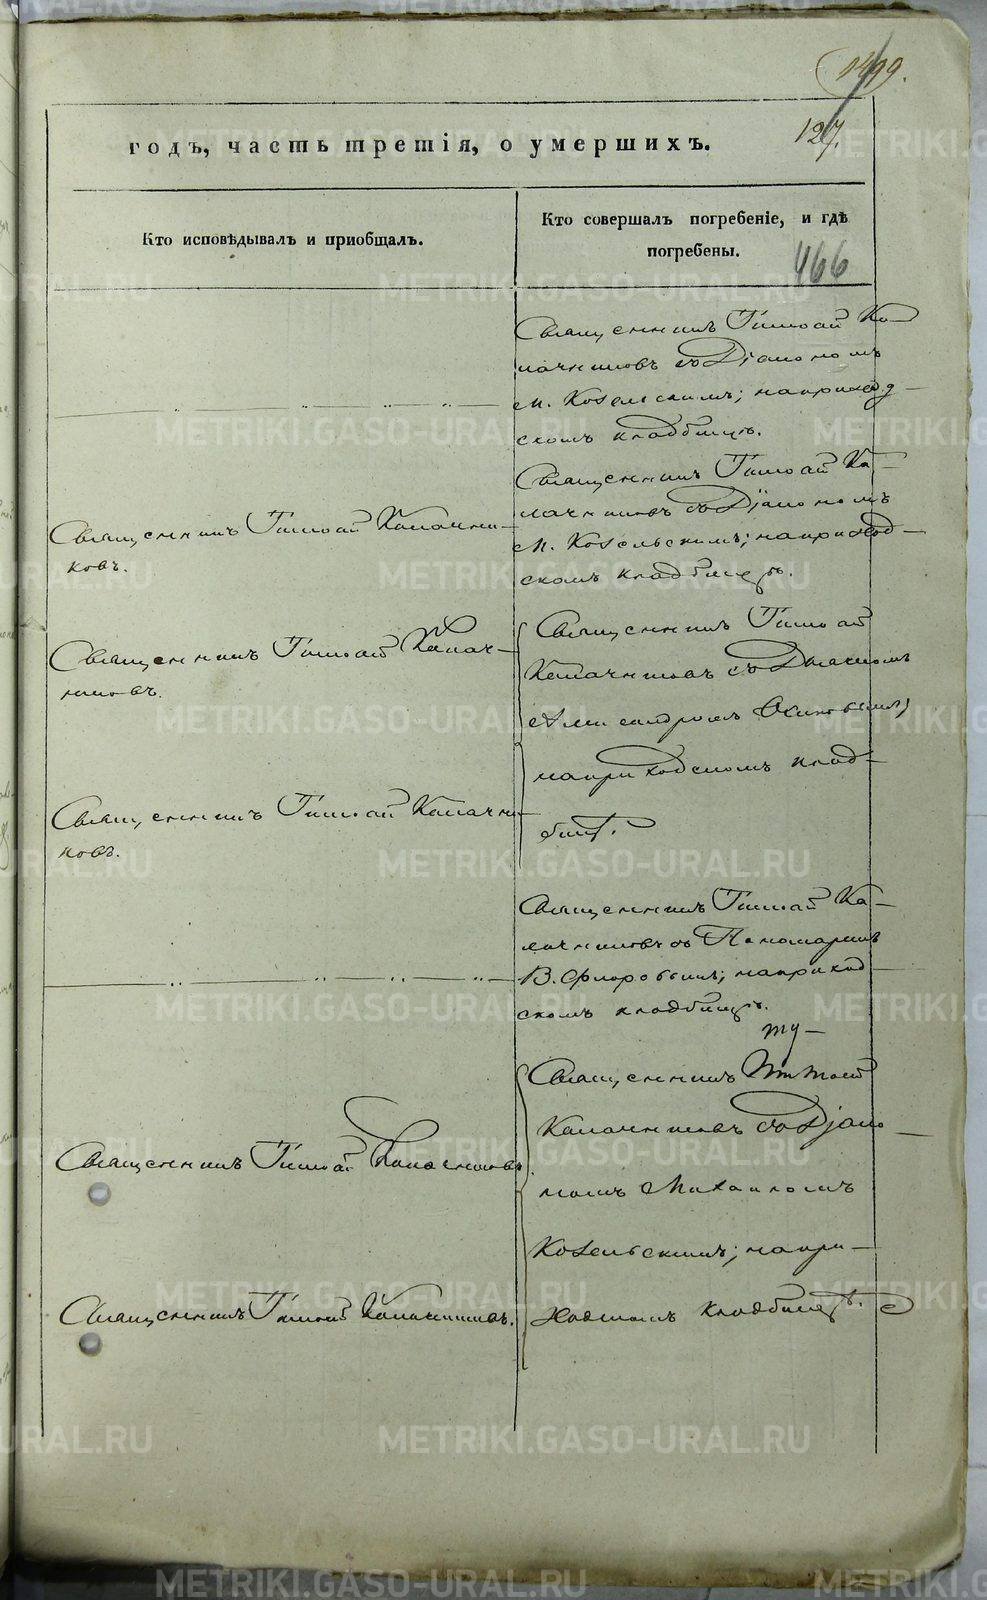 1499.
127.
годъ, часть третія, о умершихъ.
Кто исповѣдывалъ и пріобщалъ.
Кто совершалъ погребеніе, и гдѣ
погребены.
466
Священникъ Тимоѳей Ка-
лачниковъ съ Діакономъ
М. Козельскимъ; на приход-
скомъ кладбищѣ.
Священникъ Тимоѳей Ка-
лачниковъ съ Діакономъ
М. Козельскимъ; на приход-
скомъ кладбищѣ.
Священникъ Тимоѳей Калачни-
ковъ.
Священникъ Тимоѳей Калач-
никовъ.
Священникъ Тимоѳей
Калачниковъ съ Дьячкомъ
Александромъ
на приходскомъ клад-
бищѣ.
Священникъ Тимоѳей Калачни-
ковъ.
Священникъ Тимоѳей Ка-
лачниковъ съ Пономаремъ
В. Флоровымъ; на приход-
скомъ кладбищѣ.
Священникъ Тимоѳей
Калачниковъ съ Діако-
номъ Михаиломъ
Козельскимъ; на при-
ходскомъ кладбищѣ.
Священникъ Тимоѳей Калачниковъ
Священникъ Тимоѳей Калачниковъ.
METRIKI.GASO-URAL.RU